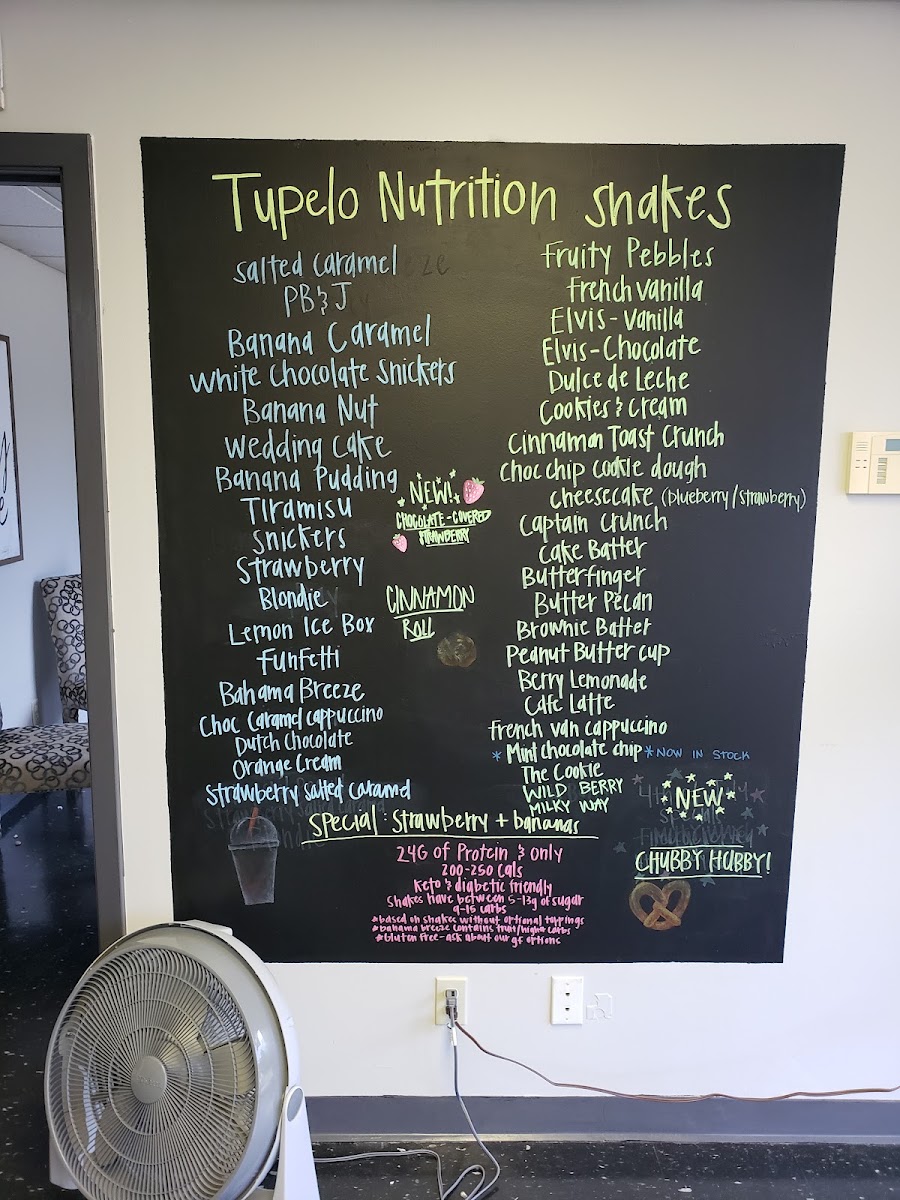 Tupelo Nutrition shakes
salted caramel
PB & J
Banana Caramel
White Chocolate Snickers
Banana Nut
Wedding Cake
Banana Pudding
Tiramisu
Snickers
Strawberry
Blondie
Lemon Ice Box
Funfetti
Bahama Breeze
Choc Caramel cappuccino
Dutch Chocolate
Orange Cream
Strawberry salted caramel
NEW!
CHOCOLATE-COVERED
STRAWBERRY
CINNAMON
ROLL
Fruity Pebbles
French vanilla
Elvis-Vanilla
Elvis-Chocolate
Dulce de Leche
Cookies & Cream
Cinnamon Toast Crunch
Choc chip cookie dough
cheesecake (blueberry/strawberry)
Captain Crunch
Cake Batter
Butterfinger
Butter Pecan
Brownie Batter
Peanut Butter cup
Berry Lemonade
Cafe Latte
French van cappuccino
* Mint chocolate chip * NOW IN STOCK
The Cookie
WILD BERRY
MILKY WAY
NEW
CHUBBY HUBBY!
Special: Strawberry + bananas
24G of Protein & only
200-250 cals
Keto & diabetic friendly
Shakes have between 5-13g of sugar
9-15 carbs
*based on shakes without optional toppings
*bahama breeze contains fruit/higher carbs
*Gluten Free-ask about our gf options